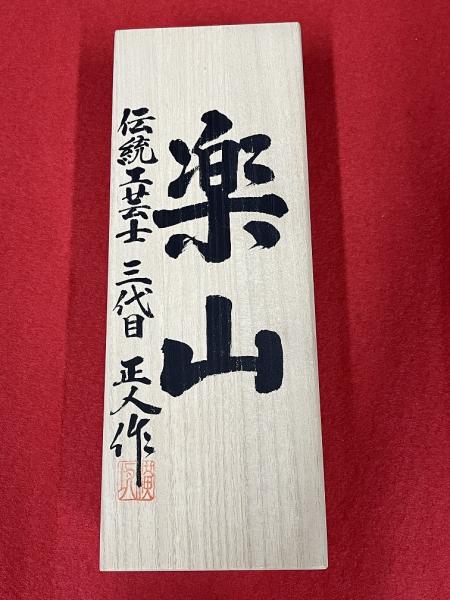 楽山
伝統工芸士 三代目 正人作